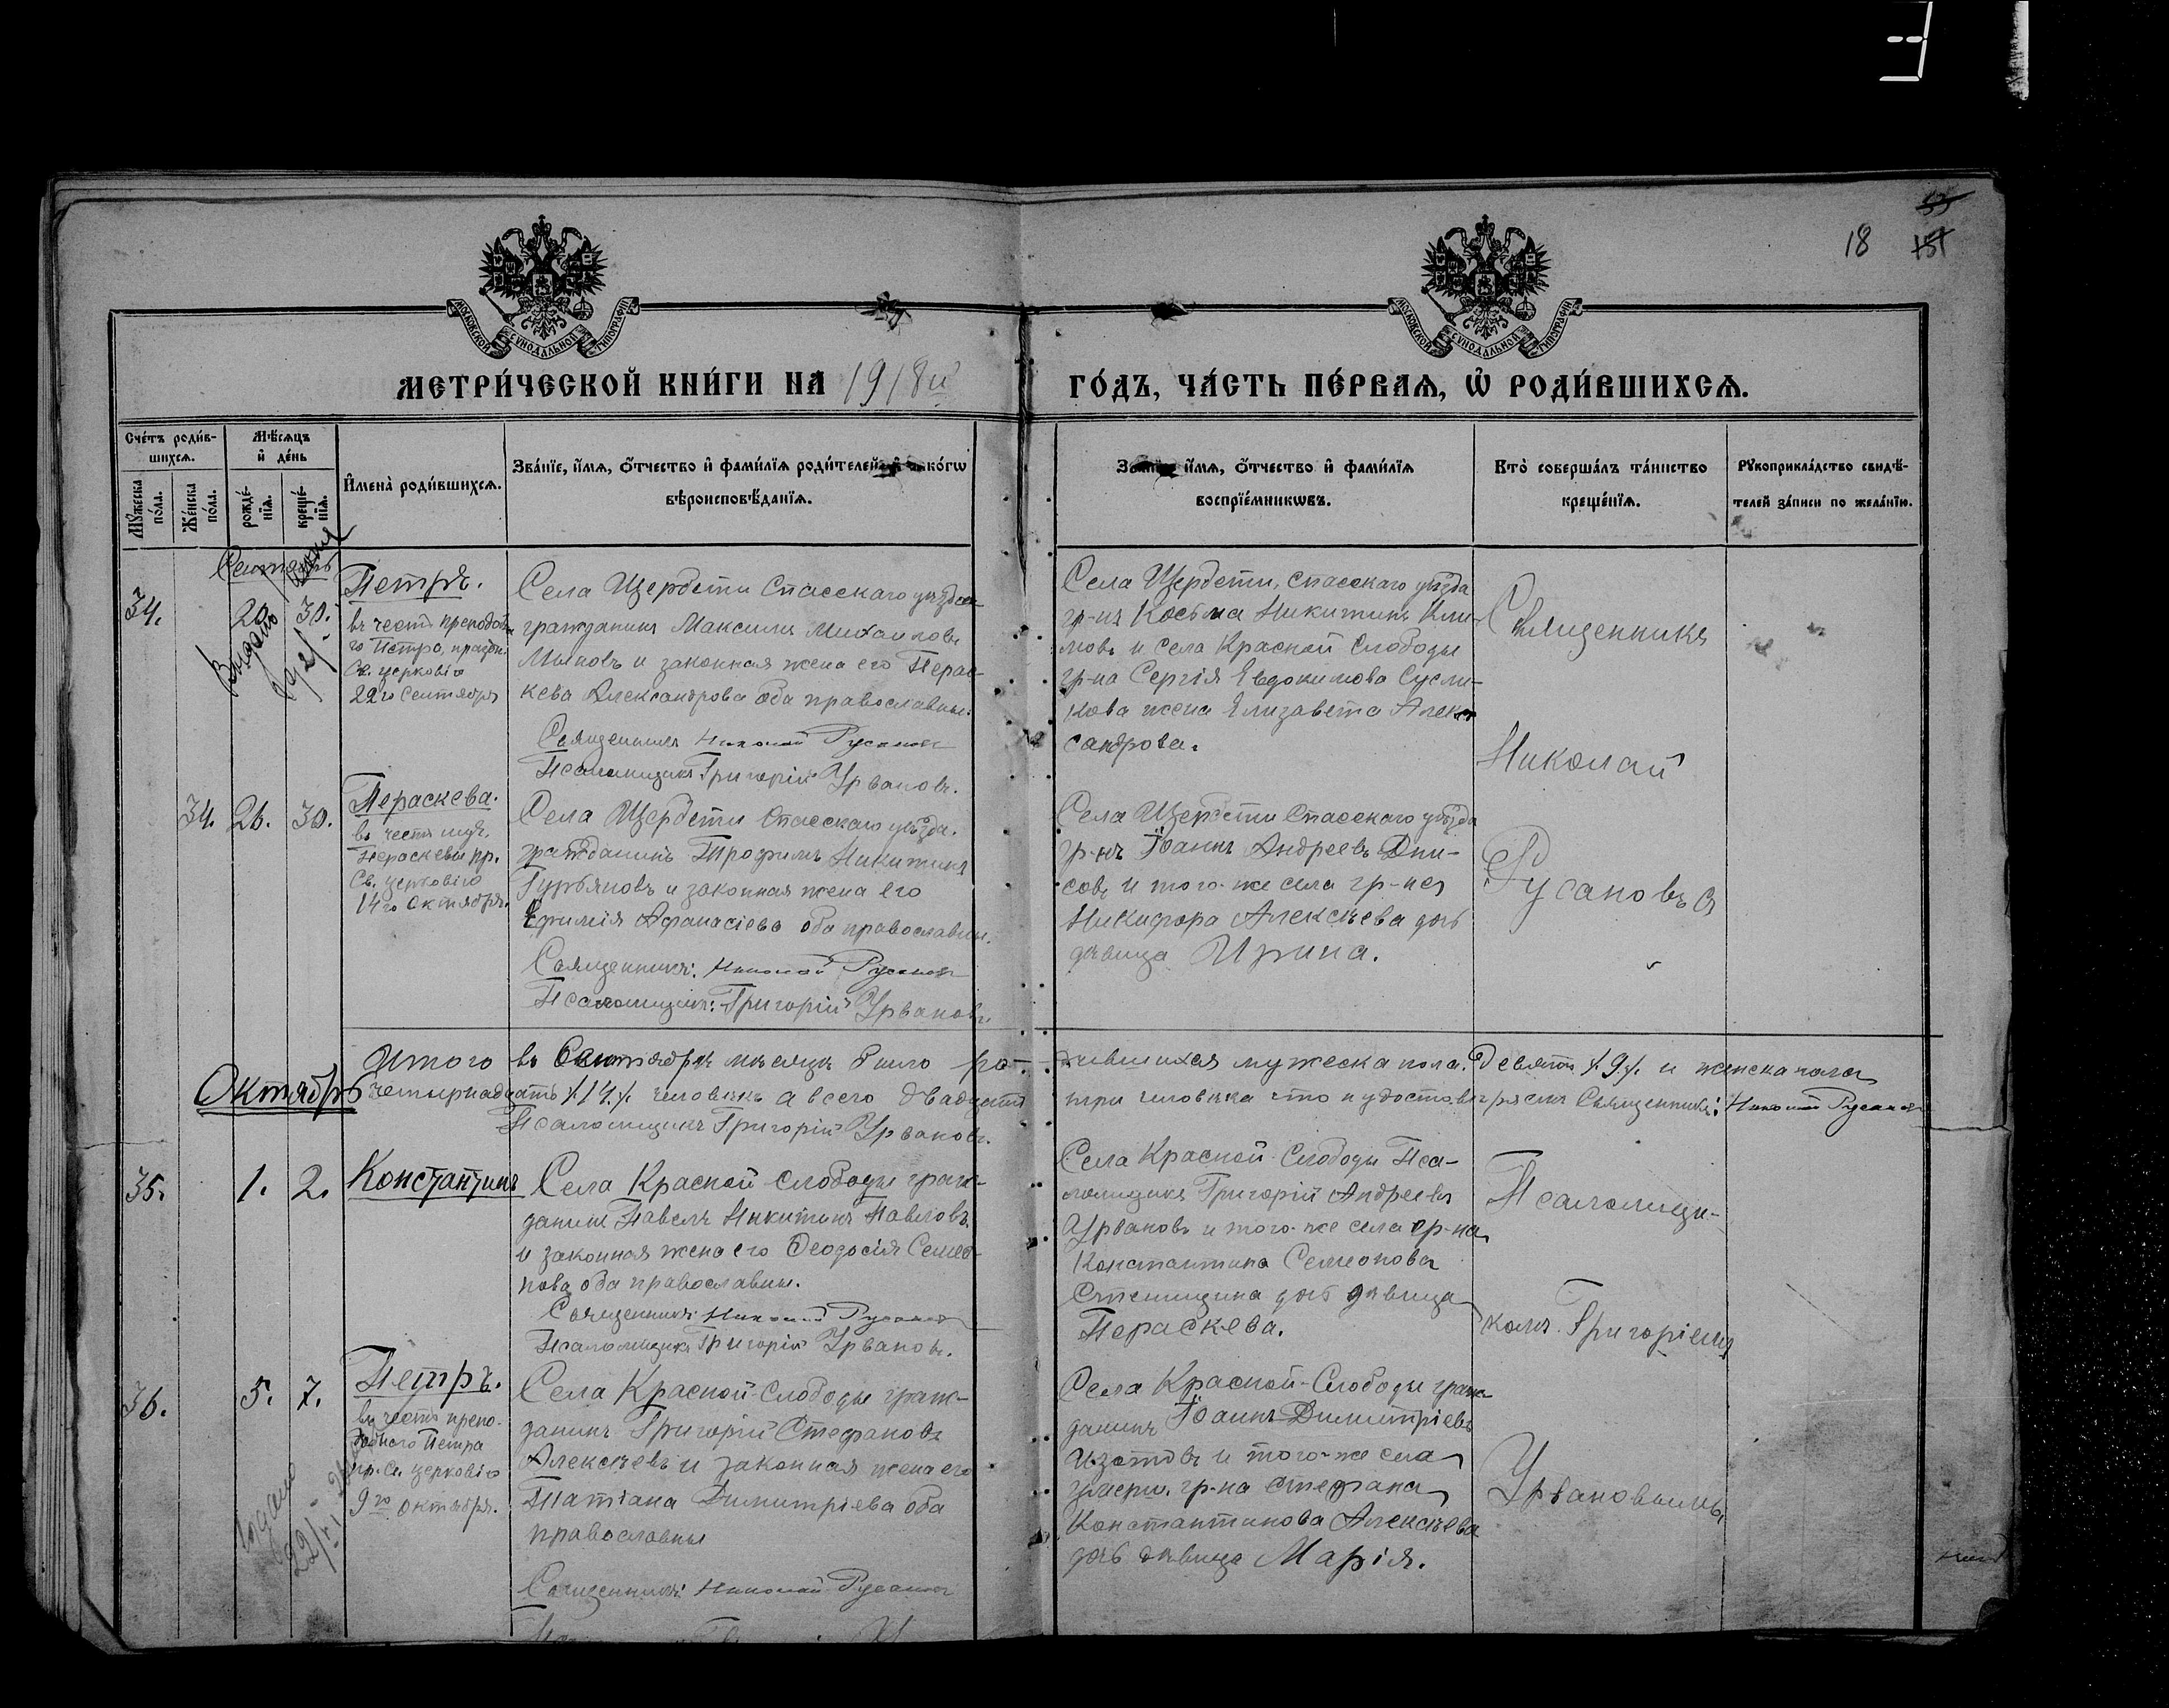 18
53
151
МОСКОВСКОЙ СѴНОДАЛЬНОЙ ТИПОГРАФІИ
МОСКОВСКОЙ СѴНОДАЛЬНОЙ ТИПОГРАФІИ
МЕТРИ́ЧЕСКОЙ КНИ́ГИ НА 1918й
ГО́ДЪ, ЧА́СТЬ ПЕ́РВАѦ, Ѽ РОДИ́ВШИХСѦ.
Сче́тъ роди́в-
шихсѧ.
Мѣ́сѧцъ
и҆ де́нь
Мꙋ́жеска по́ла.
Же́нска по́ла.
рожде́-нїѧ.
креще́-нїѧ.
И҆мена̀ роди́вшихсѧ.
Зва́нїе, и҆́мѧ, ѻ҆́тчество и҆ фами́лїѧ роди́телей, и҆ како́гѡ
вѣроисповѣ́данїѧ.
и҆́мѧ, ѻ҆́тчество и҆ фами́лїѧ
воспрїе́мникѡвъ.
Кто̀ соверша́лъ та́инство
креще́нїѧ.
Рꙋкоприкла́дство свидѣ́-
телей за́писи по жела́нїю.
Сентябрь
34.
20.
30.
Выдано
Петръ.
въ честь преподобна
го Петра, праздн.
Св. церковію
22го Сентября
Села Щербети Спасскаго уѣзда
гражданинъ Максимъ Михаиловъ
и законная жена его Парас-
кева Александрова оба православные.
Священникъ Николай Русановъ
Псаломщикъ Григорій Урвановъ.
Села Щербети, Спасскаго уѣзда
гр-нъ Косьма Никитинъ Кли-
мовъ и села Красной Слободы
гр-на Сергія Евдокимова Сусли-
кова жена Елизавета Алек-
сандрова.
Священникъ
Николай
Русановъ
34.
26.
30.
Параскева.
въ честь муч.
Параскевы пр.
Св. церковію
14го Октября.
Села Щербети Спасскаго уѣзда.
гражданинъ Трофимъ Никитинъ
Гурьяновъ и законная жена его
Ефимія Афанасіева оба православны.
Священникъ: Николай Русановъ
Псаломщикъ: Григорій Урвановъ.
Села Щербети Спасскаго уѣзда
гр-нъ Іоаннъ Андреевъ Дени-
совъ и того-же села гр-на
Никифора Алексѣева дочь
дѣвица Ирина.
Итого въ Сентябрѣ мѣсяцѣ было ро- дившихся мужеска пола девять /.9./. и женска пола
четырнадцать /.14./. человѣкъ а всего двадцать три человѣка что и удостовѣряемъ Священникъ: Николай Русановъ
Псаломщикъ Григорій Урвановъ.
Октябрь
35.
1.
2.
Константинъ
Села Красной слободы граж-
данинъ Павелъ Никитинъ Павловъ
и законная жена его Феодосія Семео-
нова оба православны.
Священникъ: Николай Русановъ
Псаломщикъ Григорій Урвановъ.
Села Красной-Слободы Пса-
ломщикъ Григорій Андреевъ
Урвановъ и того-же села гр-на
Константина Семеонова
дочь дѣвица
Параскева.
Псаломщи-
комъ Григоріемъ
Урвановымъ
36.
5.
7.
Петръ.
въ честь препо-
добнаго Петра
пр. Св. церковію
9го Октября.
Выдано
Села Красной-Слободы граж-
данинъ Григорій Стефановъ
Алексѣевъ и законная жена его
Татіана Димитріева оба
православны
Священникъ: Николай Русановъ
Села Красной-Слободы граж-
данинъ Іоаннъ Димитріевъ
Изотовъ и того-же села
умерш. гр-на Стефана
Константинова Алексѣева
дочь дѣвица Марія.